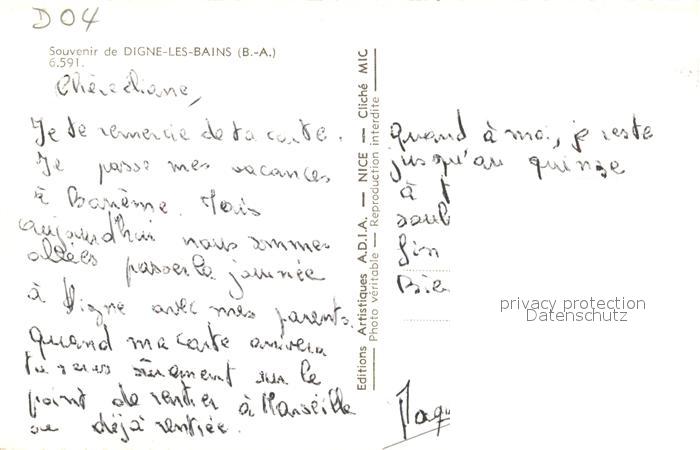 D04
Souvenir de DIGNE-LES-BAINS (B.-A.)
6.591.
Chère Liliane,
Je te remercie de ta carte.
Je passe mes vacances
à Barrême. Mais
aujourd'hui nous sommes
allées passer la journée
à Digne avec mes parents.
Quand ma carte arrivera
tu seras sûrement sur le
point de rentrer à Marseille
ou déjà rentrée.
Editions Artistiques A.D.I.A. — NICE — Cliché MIC
Photo véritable — Reproduction interdite
quand à moi, je reste
jusqu'au quinze
à
Bie
privacy protection
Datenschutz